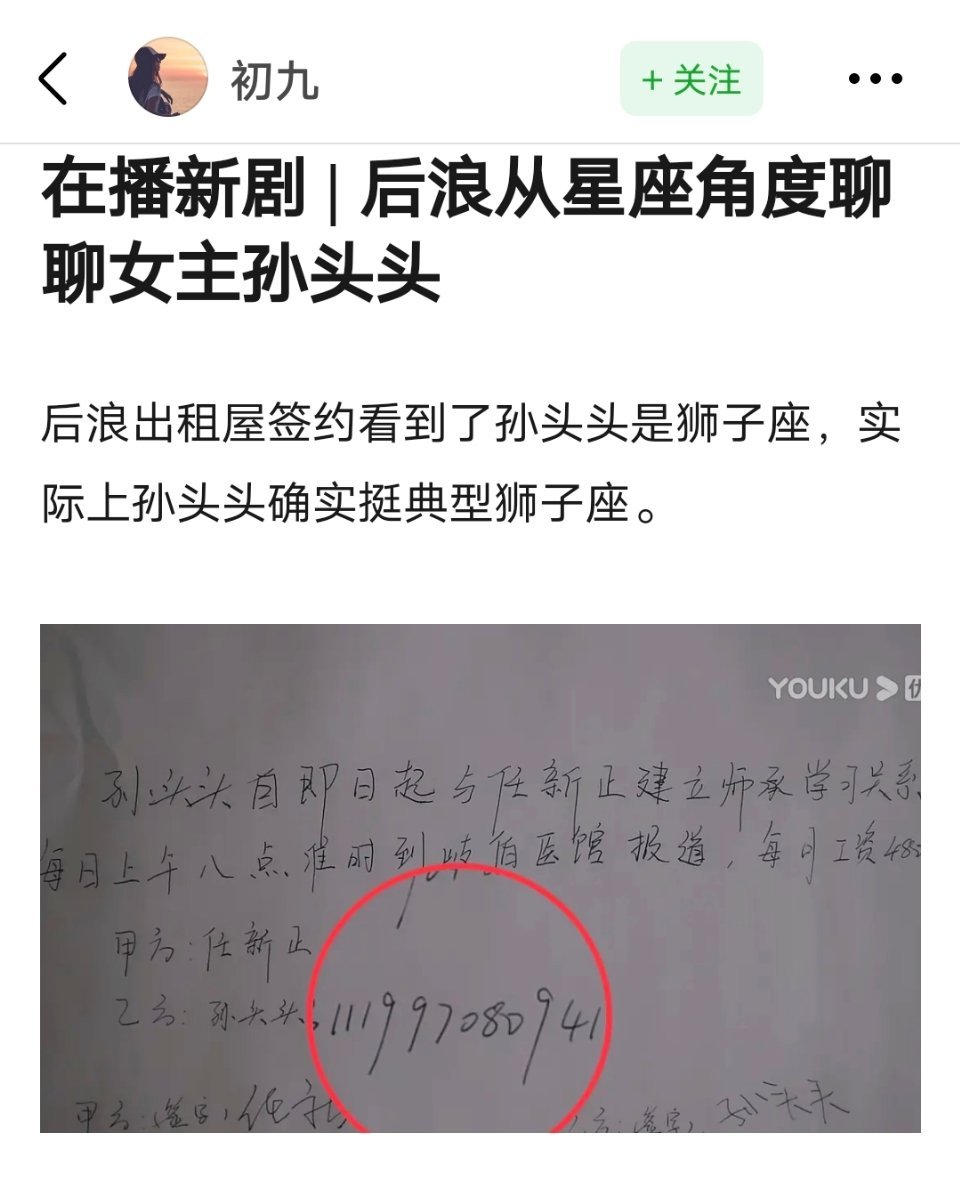 初九
+ 关注
在播新剧 | 后浪从星座角度聊
聊女主孙头头
后浪出租屋签约看到了孙头头是狮子座，实
际上孙头头确实挺典型狮子座。
YOUKU
孙头头自即日起与任新正建立师承学习关系
每日上午八点准时到岐伯医馆报道，每月工资48
甲方：任新正
乙方：孙头头，111997080941
甲方：签字：任新
乙方：签字：孙头头